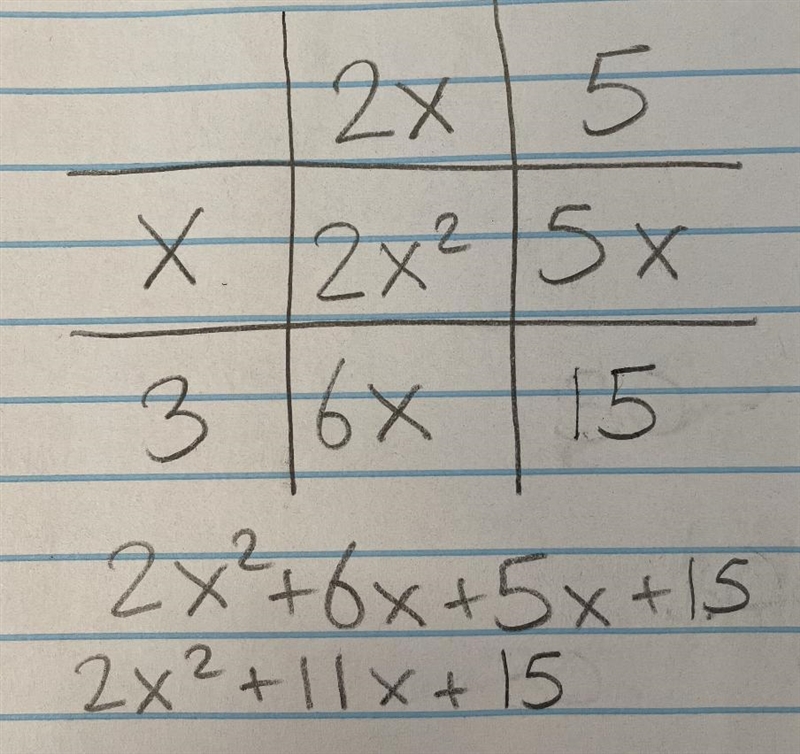 2x 5
x 2x² 5x
3 6x 15
2x²+6x+5x+15
2x²+11x+15